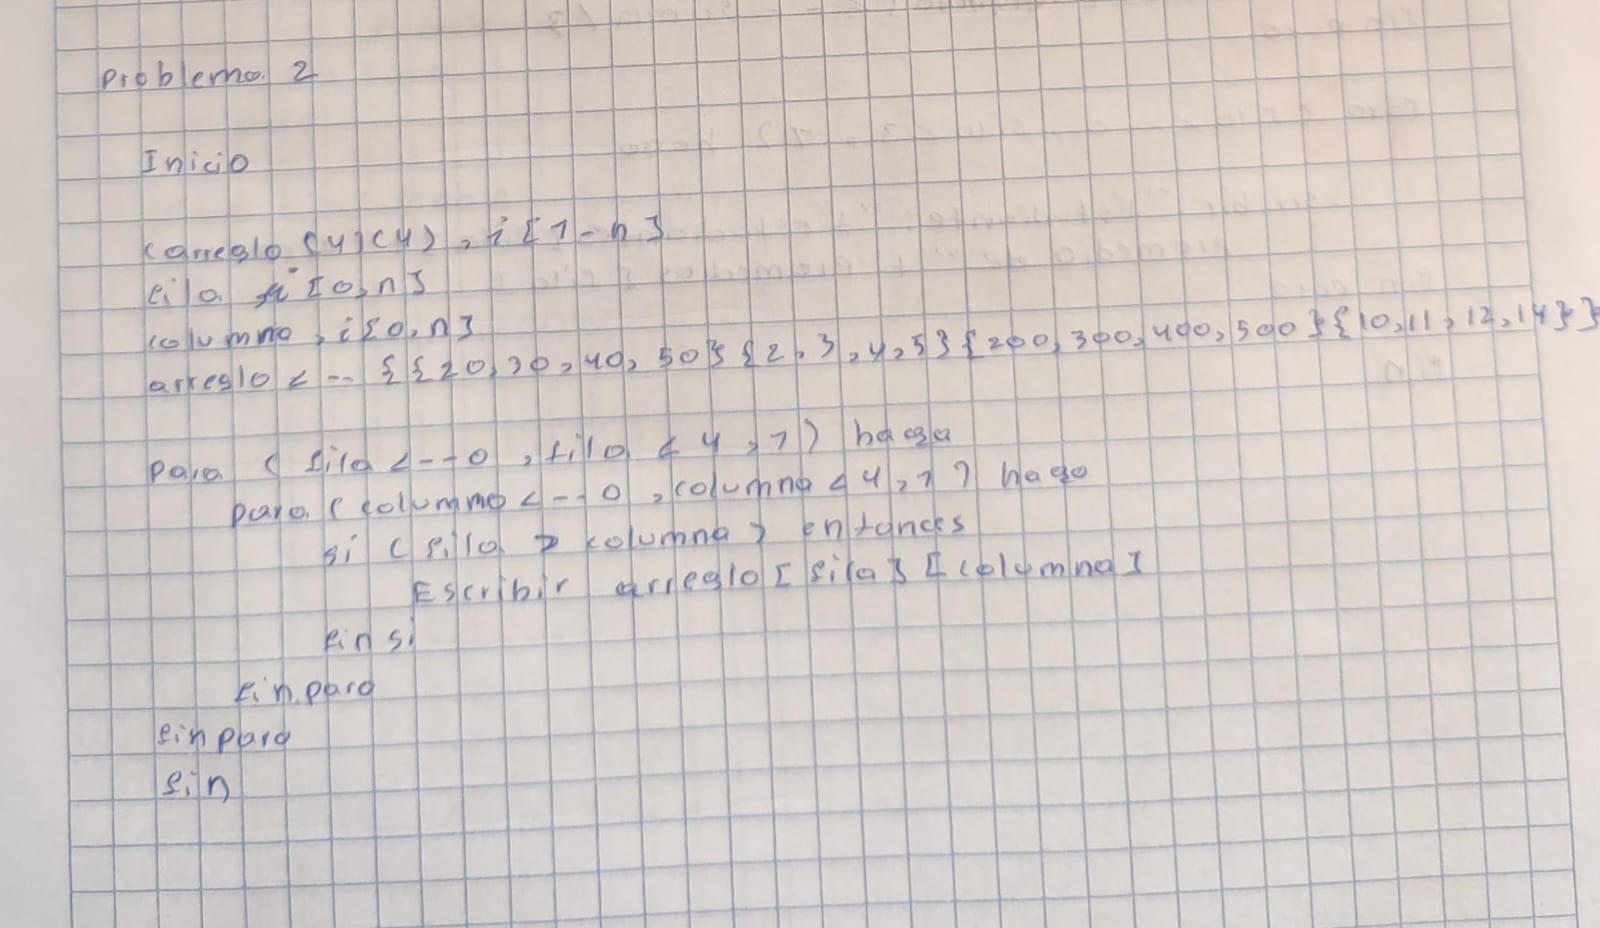 Problema 2
Inicio
(arreglo (4)(4), i[1-n]
fila i[0,n]
columna, i[0,n]
arreglo <-- {{20,30,40,50}{2,3,4,5}{200,300,400,500}{10,11,12,14}}
Para (fila <--0, fila < 4,1) haga
para (columna <--0, columna < 4,1) haga
si (fila > columna) entonces
Escribir arreglo [fila] [columna]
fin si
fin para
fin para
fin